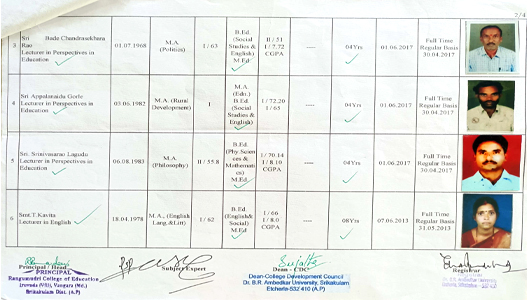 2/4
3
Sri Bade Chandrasekhara
Rao
Lecturer in Perspectives in
Education
01.07.1968
M.A.
(Politics)
I / 63
B.Ed
(Social
Studies &
English)
M.Ed
II / 51
I / 7.72
CGPA
----
04Yrs
01.06.2017
Full Time
Regular Basis
30.04.2017
4
Sri Appalanaidu Gorle
Lecturer in Perspectives in
Education
03.06.1982
M.A. (Rural
Development)
I
M.A.
(Edn.)
B.Ed.
(Social
Studies &
English)
I / 72.20
I / 65
----
04Yrs
01.06.2017
Full Time
Regular Basis
30.04.2017
5
Sri. Srinivasarao Lagudu
Lecturer in Perspectives in
Education
06.08.1983
M.A.
(Philosophy)
II / 55.8
B.Ed.
(Phy.Scien
ces &
Mathemati
cs)
M.Ed.
I / 70.14
I / 8.10
CGPA
----
04Yrs
01.06.2017
Full Time
Regular Basis
30.04.2017
6
Smt.T.Kavita
Lecturer in English
18.04.1978
M.A., (English
Lang.&Litt)
I / 62
B.Ed
(English&
Social)
M.Ed
I / 66
I / 8.0
CGPA
----
08Yrs
07.06.2013
Full Time
Regular Basis
31.05.2013
Principal / Head
PRINCIPAL
Rangamudri College of Education
Srikakulam Dist. (A.P)
Subject Expert
Sujatha
Dean - CDC
Dean-College Development Council
Dr. B.R. Ambedkar University, Srikakulam
Etcherla-532 410 (A.P)
Registrar